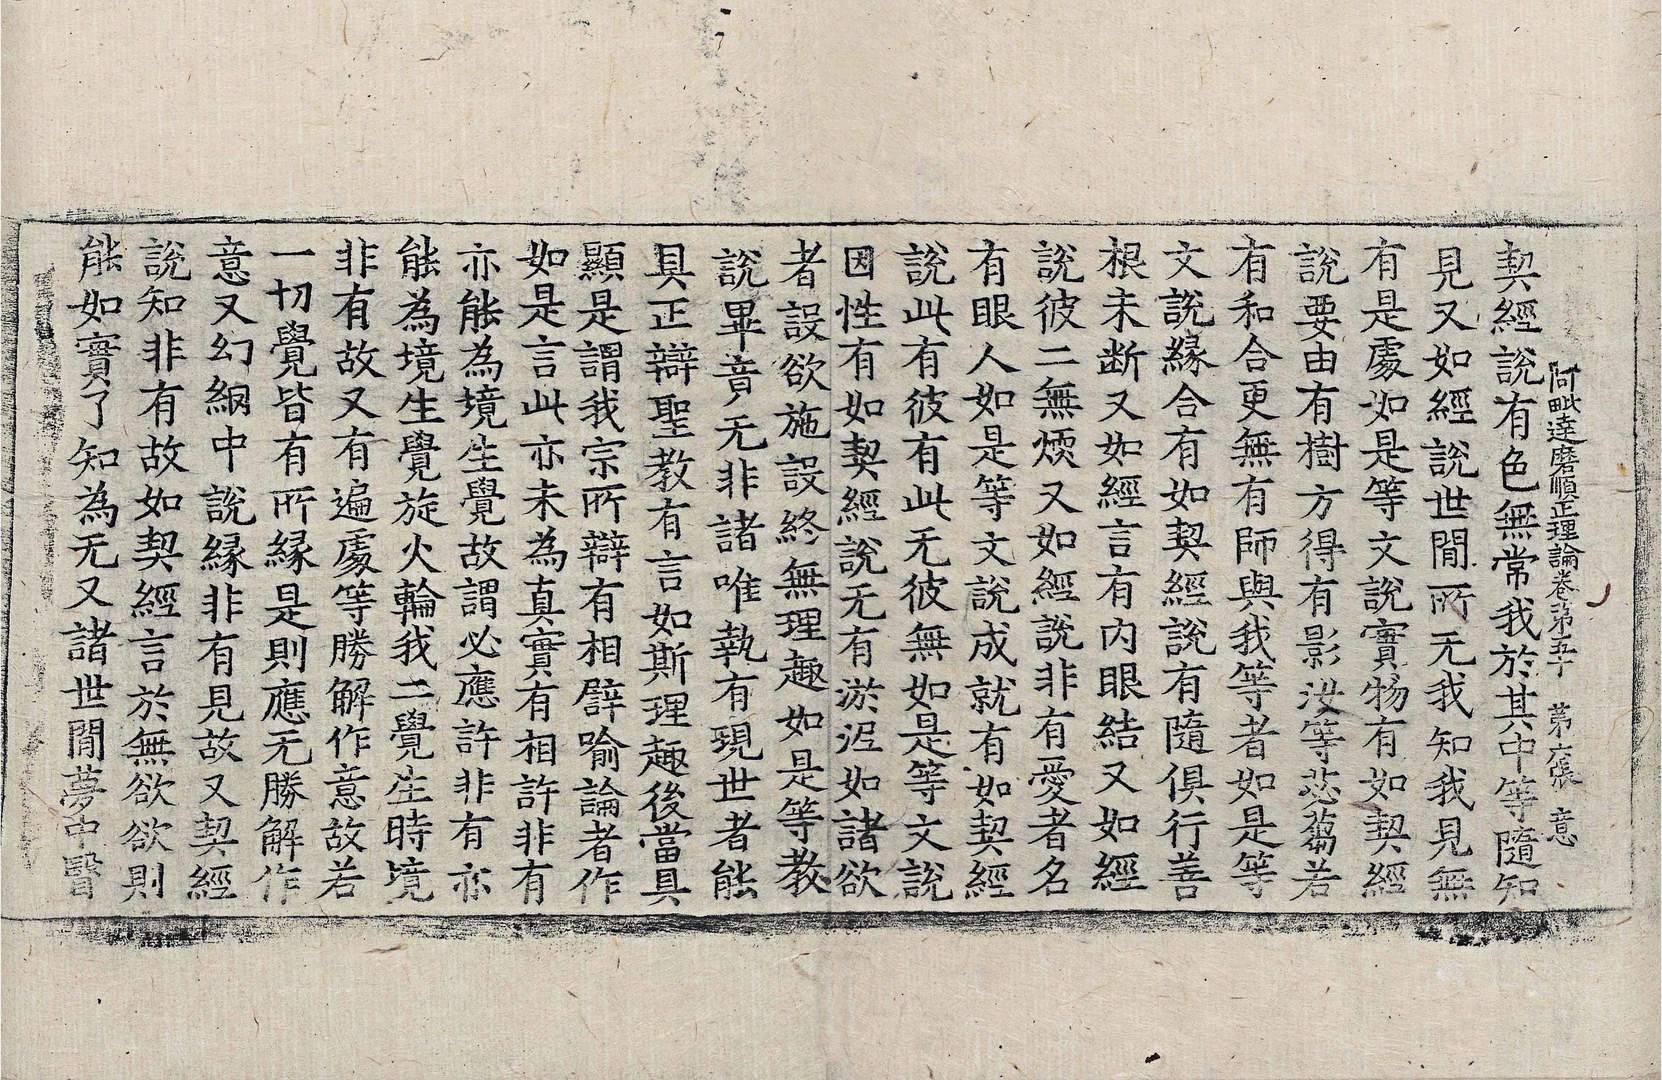 阿毗達磨順正理論卷第五十 第六張 意
契經說有色無常我於其中等隨知
見又如經說世閒所无我知我見無
有是處如是等文說實物有如契經
說要由有樹方得有影汝等苾蒭若
有和合更無有師與我等者如是等
文說緣合有如契經說有隨俱行善
根未断又如經言有內眼結又如經
說彼二無煗又如經說非有愛者名
有眼人如是等文說成就有如契經
說此有彼有此无彼無如是等文說
因性有如契經說无有淤泥如諸欲
者設欲施設終無理趣如是等教
說畢竟无非諸唯執有現世者能
具正辯聖教有言如斯理趣後當具
顯是謂我宗所辯有相譬喻論者作
如是言此亦未為真實有相許非有
亦能為境生覺故謂必應許非有亦
能為境生覺旋火輪我二覺生時境
非有故又有遍處等勝解作意故若
一切覺皆有所緣是則應无勝解作
意又幻網中說緣非有見故又契經
說知非有故如契經言於無欲欲則
能如實了知為无又諸世閒夢中瞖